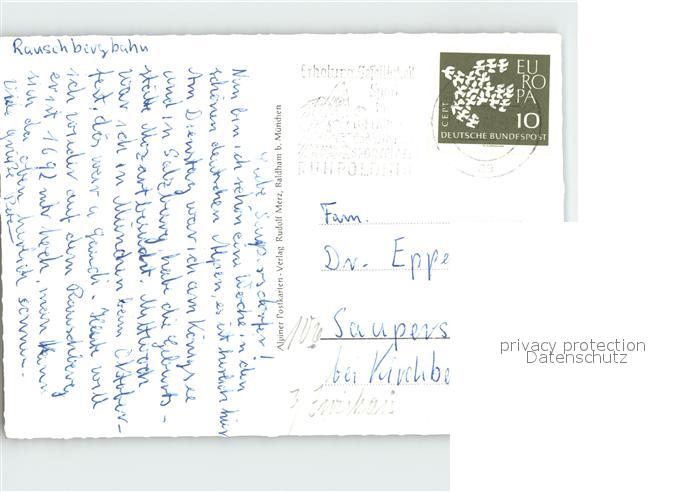 Rauschbergbahn
Liebe Saupersdorfer!
Nun bin ich schon eine Woche in den
schönen deutschen Alpen, es ist herrlich hier
Am Dienstag war ich am Königssee
und in Salzburg, habe die Geburts-
stätte Mozart besucht. Mittwoch
war ich in München beim Oktober-
fest, das war a Gaudi. Heute will
ich wieder auf den Rauschberg
er ist 1692 mtr hoch, man kann
sich da oben herrlich sonnen.
Viele Grüße Peter
Alpiner Postkarten-Verlag Rudolf Merz, Baldham b. München
Erholung Geselligkeit
RUHPOLDING
EUROPA
CEPT
10
DEUTSCHE BUNDESPOST
Fam.
Dr. Eppe
10a Saupers
bei Kirchbe
privacy protection
Datenschutz